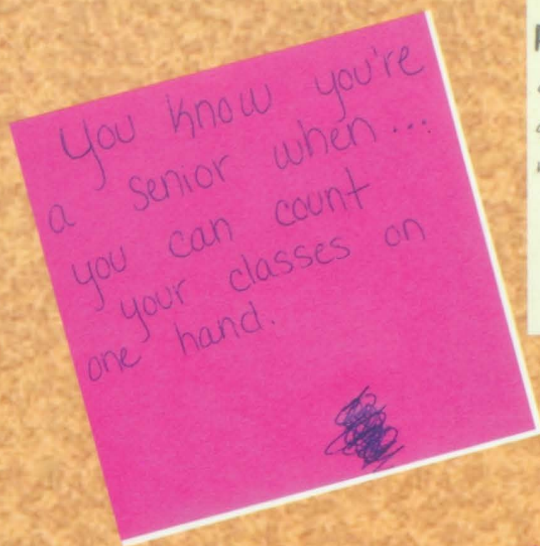 You know you're
a senior when...
you can count
your classes on
one hand.